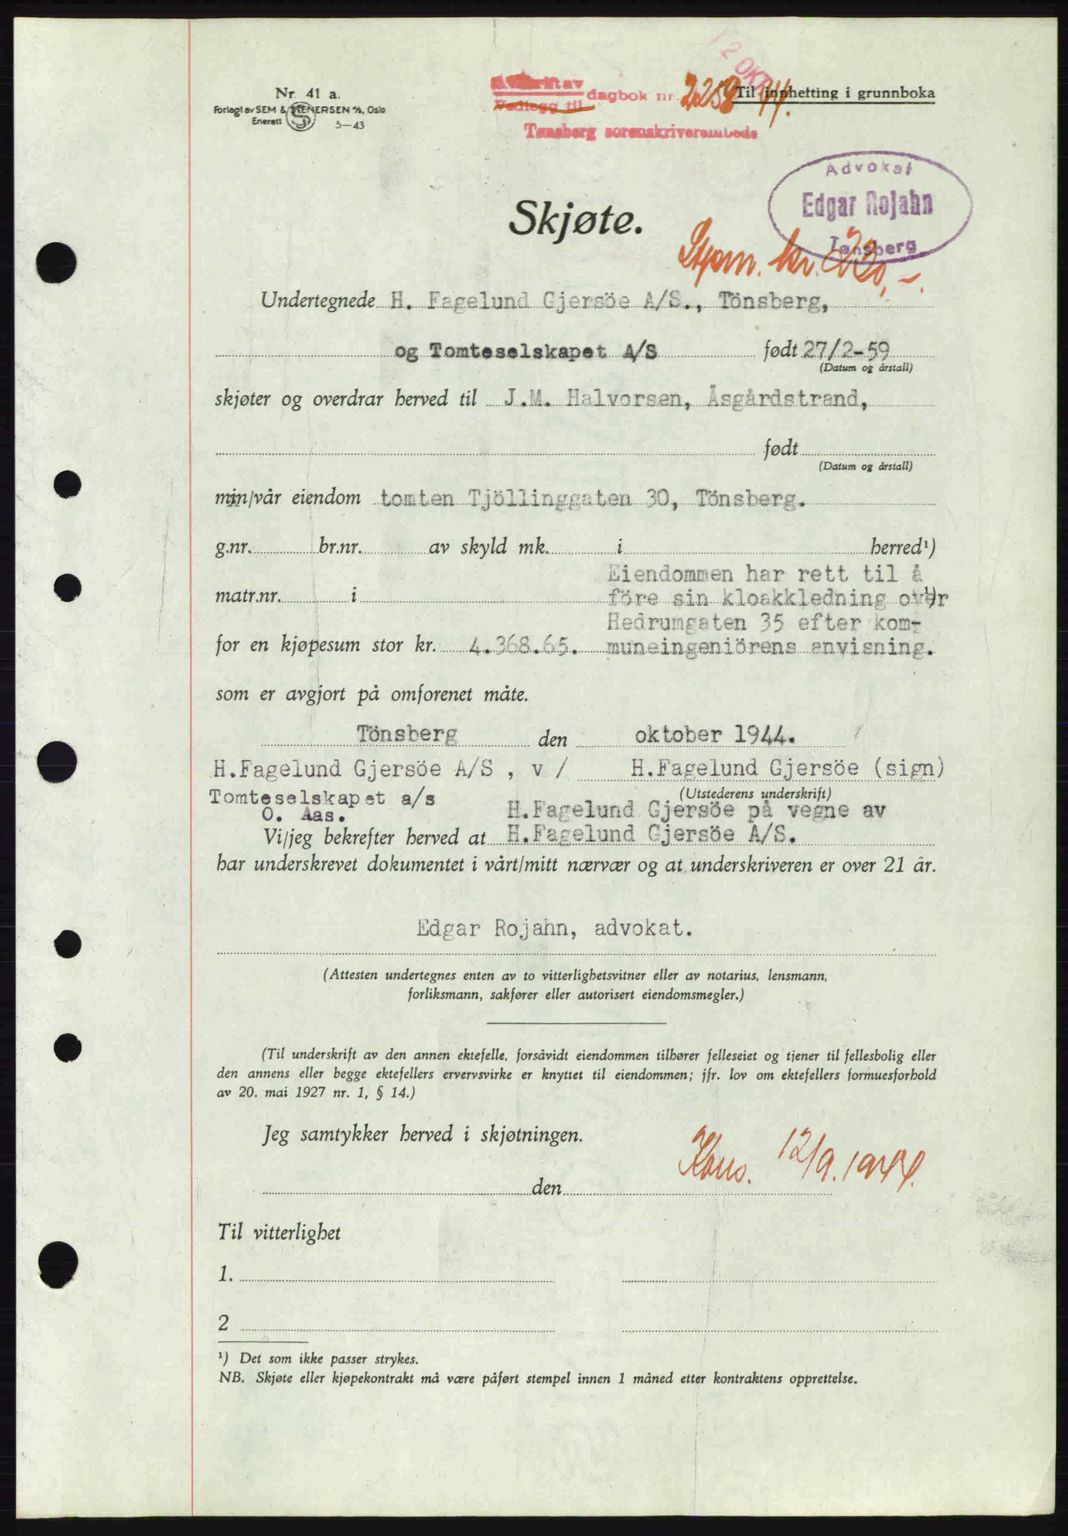 12 OKT.
Nr. 41 a.
Forlagt av SEM & STENERSEN A/S, Oslo
Enerett S 5-43
Avskrift av
Vedlegg til dagbok nr. 2258/44.
Til innhetting i grunnboka
Tønsberg sorenskriverembede
Advokat
Edgar Rojahn
Tønsberg
Skjøte.
kr.
Undertegnede H. Fagelund Gjersöe A/S., Tönsberg,
og Tomteselskapet A/S født 27/2-59
(Datum og årstall)
skjøter og overdrar herved til J.M. Halvorsen, Åsgårdstrand,
født
(Datum og årstall)
min/vår eiendom tomten Tjöllinggaten 30, Tönsberg.
g.nr. br.nr. av skyld mk. i herred¹)
Eiendommen har rett til å
matr.nr. i före sin kloakkledning over ¹)
Hedrumgaten 35 efter kom-
for en kjøpesum stor kr. 4.368.65. muneingeniörens anvisning.
som er avgjort på omforenet måte.
Tönsberg den oktober 1944.
H.Fagelund Gjersöe A/S , v / H.Fagelund Gjersöe (sign)
(Utstederens underskrift)
Tomteselskapet a/s H.Fagelund Gjersöe på vegne av
O. Aas.
Vi/jeg bekrefter herved at H.Fagelund Gjersöe A/S.
har underskrevet dokumentet i vårt/mitt nærvær og at underskriveren er over 21 år.
Edgar Rojahn, advokat.
(Attesten undertegnes enten av to vitterlighetsvitner eller av notarius, lensmann,
forliksmann, sakfører eller autorisert eiendomsmegler.)
(Til underskrift av den annen ektefelle, forsåvidt eiendommen tilhører felleseiet og tjener til fellesbolig eller
den annens eller begge ektefellers ervervsvirke er knyttet til eiendommen; jfr. lov om ektefellers formuesforhold
av 20. mai 1927 nr. 1, § 14.)
Jeg samtykker herved i skjøtningen.
Kons. 12/9.1944.
den
Til vitterlighet
1.
2
¹) Det som ikke passer strykes.
NB. Skjøte eller kjøpekontrakt må være påført stempel innen 1 måned etter kontraktens opprettelse.